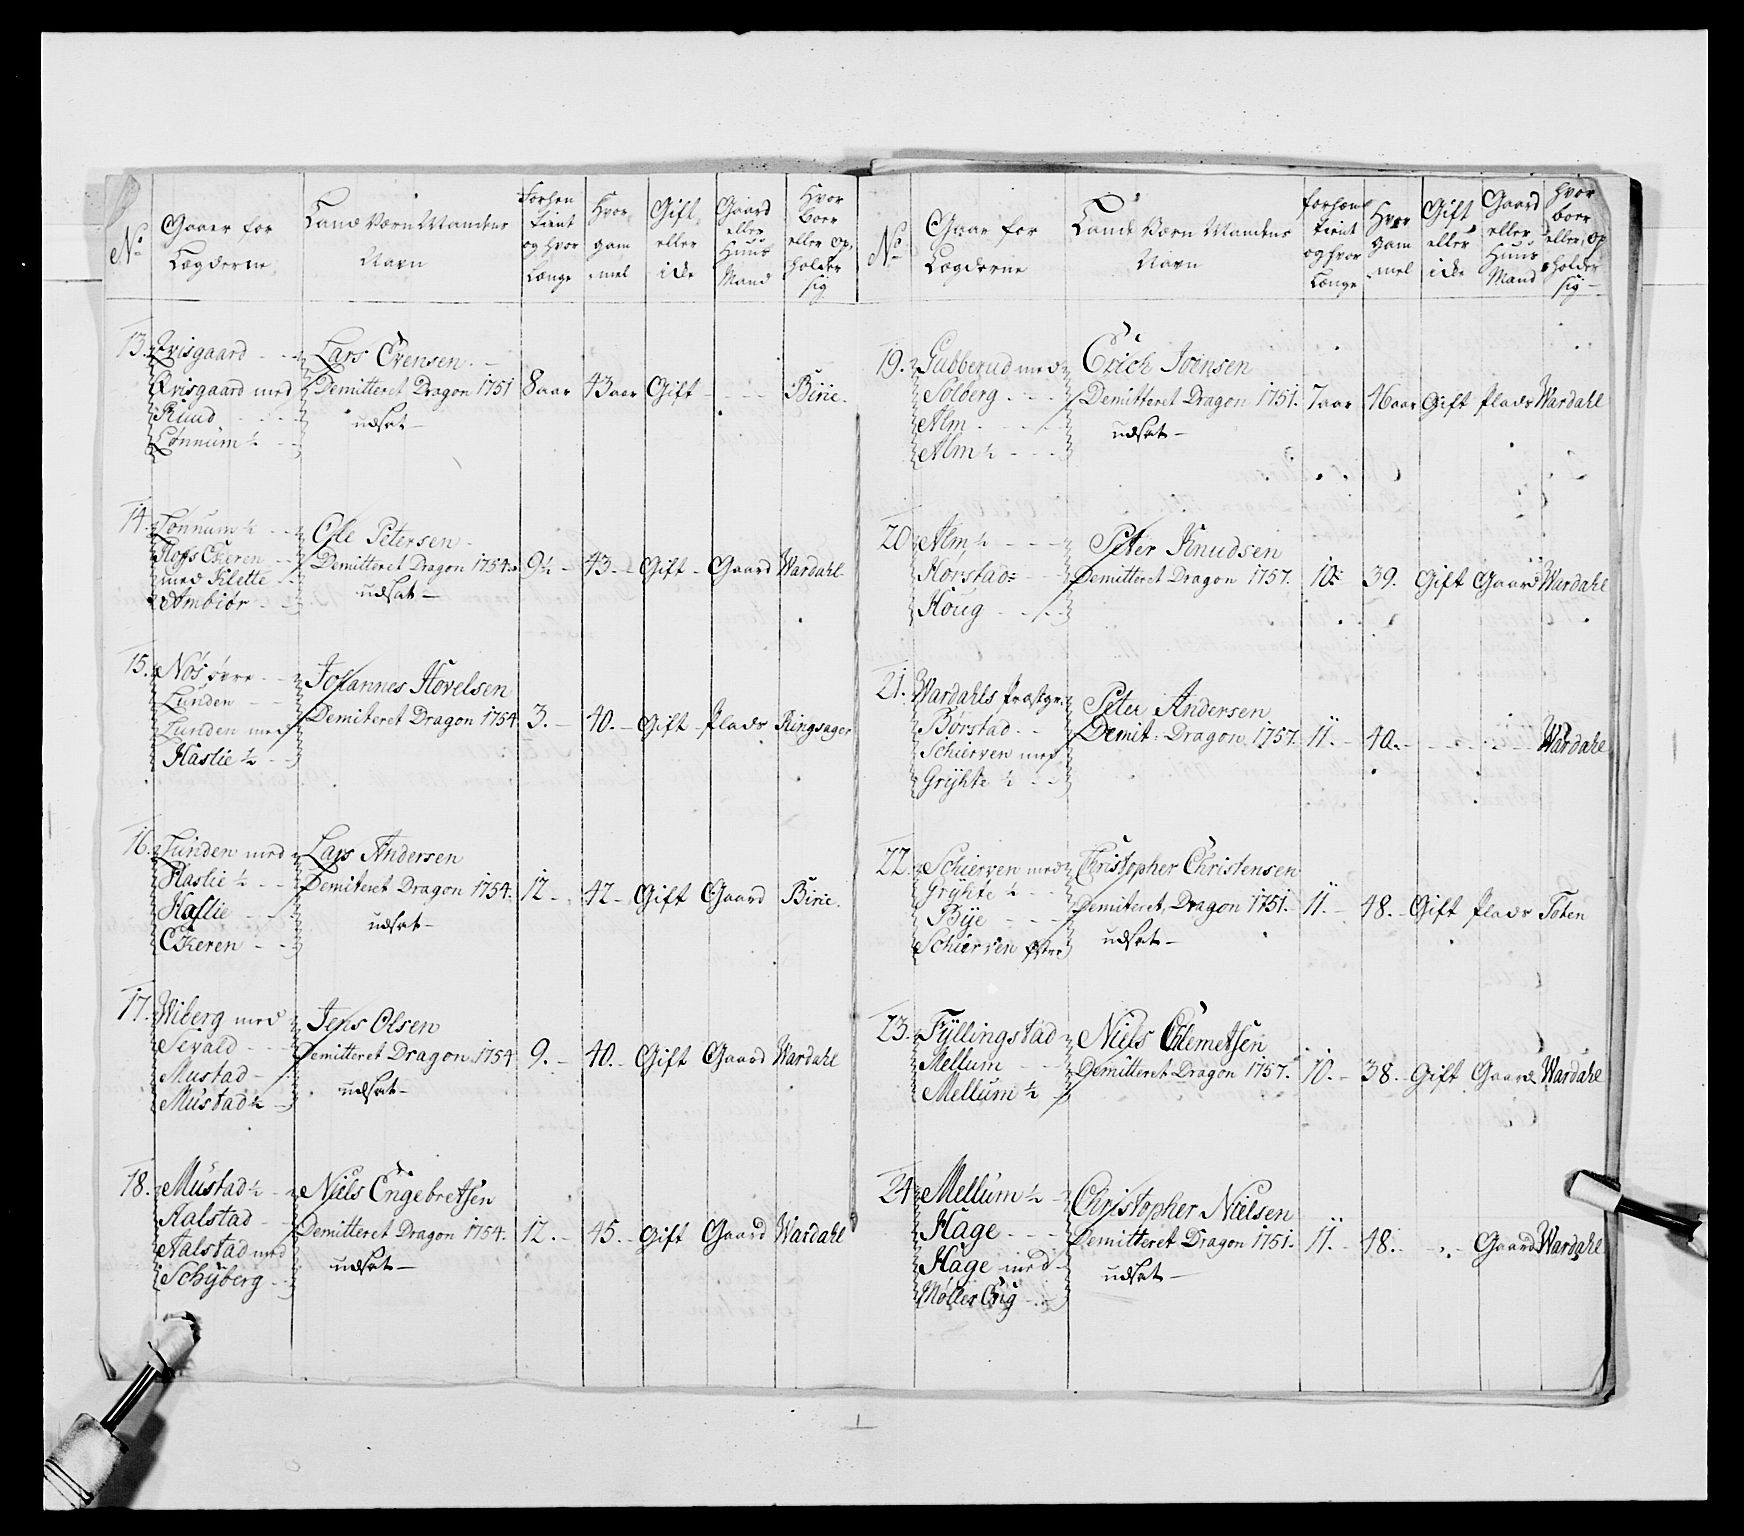 No
Gaarer for
Lægderne
Land Værn Mandens
Navn
Forhen
tient
og hvor
Længe
Hvor
gam
mel
Gift
eller
icke
Gaard
eller
Huus
Mand
Hvor
boer
eller op
holder
sig
13. Qvisgaard
Qvisgaard med
Ruud
Lønnum ½
Lars Evensen
Demitteret Dragon 1751
udsat
8 aar 43 aar Gift Birie.
14. Lønnum ½
Skeren
med Klette
Ambiør
Ole Petersen
Demitteret Dragon 1754
udsat
9½ 43 Gift Gaard Wardahl
15. Nøs øvre
Lunden
Lunden med
Haslie ½
Johannes Hovelsen
Demiteret Dragon 1754
3. 40. Gift Plads Ringsager
16. Lunden med
Haslie ½
Haslie
Skeren
Lars Andersen
Demiteret Dragon 1754.
udsat
12 42 Gift Gaard Birie.
17. Wiberg med
Sevald
Mustad
Mustad ½
Jens Olsen
Demitteret Dragon 1754
udsat
9. 40. Gift Gaard Wardahl
18. Mustad ½
Aalstad
Aalstad med
Schyberg
Niels Engebretsen
Demitteret Dragon 1754.
udsat
12. 45. Gift Gaard Wardahl
No
Gaar for
Lægderne
Land Værn Mandens
Navn
forhen
tient
og hvor
Længe
Hvor
gam
mel
Gift
eller
icke
Gaard
eller
Huus
Mand
Hvor
boer
eller op
holder
sig
19. Gubberud med
Solberg
Alm
Alm ½
Erich Joensen
Demitteret Dragon 1751.
udsat
7 aar 46 aar Gift Plads Wardahl
20 Alm ½
Korstad
Houg
Peter Knudsen
Demitteret Dragon 1757.
10 39. Gift Gaard Wardahl
21. Wardahls Præstgr.
Børstad
Schierven med
Grythe ½
Peter Andersen
Demit: Dragon 1757.
11. 40. Wardahl
22. Schierven med
Grythe ½
Bye
Schierven øster
Christopher Christensen
Demiteret Dragon 1751.
udsat
11. 48. Gift Plads Toten
23. Fyllingstad
Mellum
Mellum ½
Niels Clemetsen
Demitteret Dragon 1757.
10. 38. Gift Gaard Wardahl
24 Mellum ½
Hage
Hage med
Møller Eng
Christopher Nielsen
Demitteret Dragon 1751.
udsat
11. 48. Gaard Wardahl